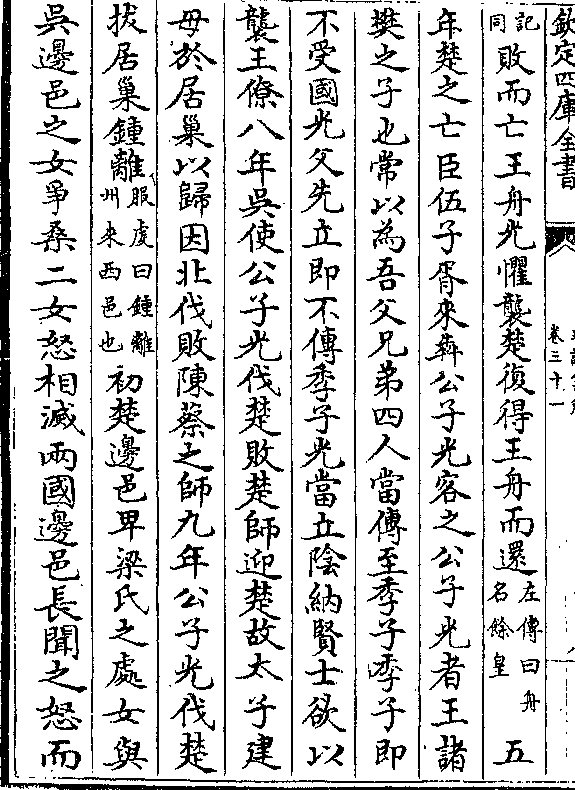 欽定四庫全書
卷三十一
記同敗而亡王舟光懼襲楚復得王舟而還左傳曰舟名餘皇五
年楚之亡臣伍子胥來犇公子光客之公子光者王諸
樊之子也常以為吾父兄弟四人當傳至季子季子即
不受國光父先立即不傳季子光當立陰納賢士欲以
襲王僚八年吳使公子光伐楚敗楚師迎楚故太子建
母於居巢以歸因北伐敗陳蔡之師九年公子光伐楚
拔居巢鍾離服虔曰鍾離州來西邑也初楚邊邑卑梁氏之處女與
吳邊邑之女爭桑二女怒相滅兩國邊邑長聞之怒而